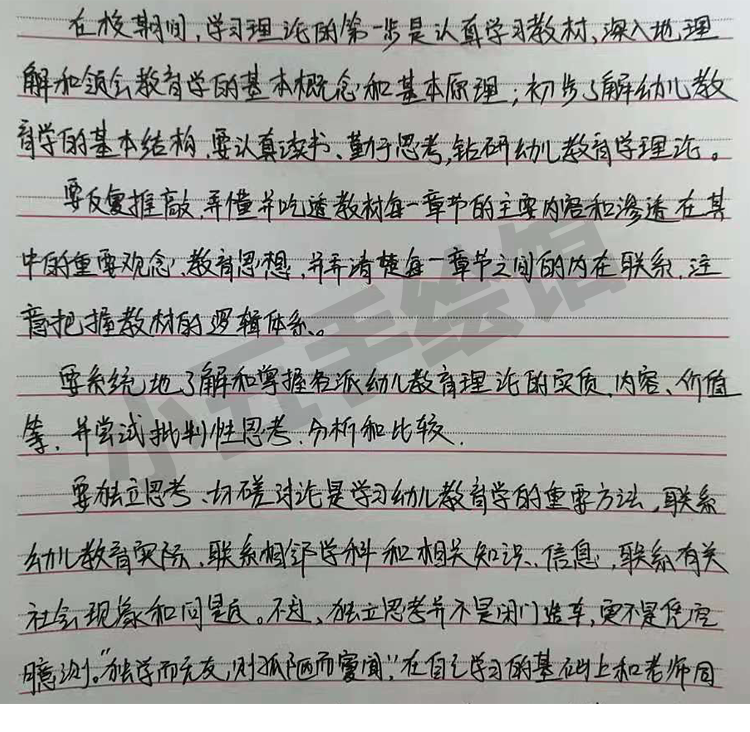 在校期间,学习理论的第一步是认真学习教材、深入地理
解和领会教育学的基本概念和基本原理;初步了解幼儿教
育学的基本结构,要认真读书、勤于思考,钻研幼儿教育学理论。
要反复推敲,弄懂并吃透教材每一章节的主要内容和渗透在其
中的重要观念、教育思想,并弄清楚每一章节之间的内在联系,注
意把握教材的逻辑体系。
要系统地了解和掌握各派幼儿教育理论的实质、内容、价值
等,并尝试批判性思考、分析和比较.
要独立思考、切磋讨论是学习幼儿教育学的重要方法,联系
幼儿教育实际、联系相邻学科和相关知识、信息,联系有关
社会现象和问题。不过,独立思考并不是闭门造车,更不是凭空
臆测。"独学而无友,则孤陋而寡闻"。在自己学习的基础上和老师同
小元手绘馆